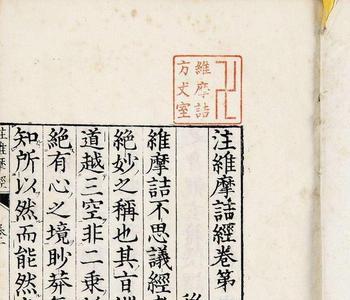 維摩詰
方丈室
注維摩詰經卷第
維摩詰不思議經
絕妙之稱也其旨
道越三空非二乘
絕有心之境眇莽
知所以然而能然
注維摩經